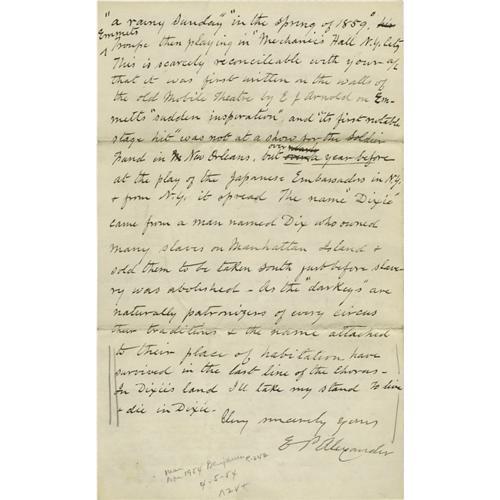 "a rainy Sunday" in the spring of 1859,"
Emmets
Troupe then playing in "Mechanics Hall N.Y. City
This is scarcely reconcileable with your
that it was first written on the walls of
the old Mobile Theatre by E J Arnold on Em-
metts "sudden inspiration", and "its first notable
stage hit" was not at a show for the Soldier
Fund in New Orleans, but over a year before
at the play of the Japanese Embassadors in N.Y.
& from N.Y. it spread The name "Dixie"
came from a man named Dix who owned
many slaves on Manhattan Island &
sold them to be taken South just before slave-
ry was abolished - As the "darkeys" are
naturally patronizers of every circus
their traditions & the name attached
to their place of habitation have
survived in the last line of the Chorus -
In Dixie's land I'll take my stand To live
& die in Dixie -
Very sincerely yours
E P Alexander
1954 Benjamin
4-5-54